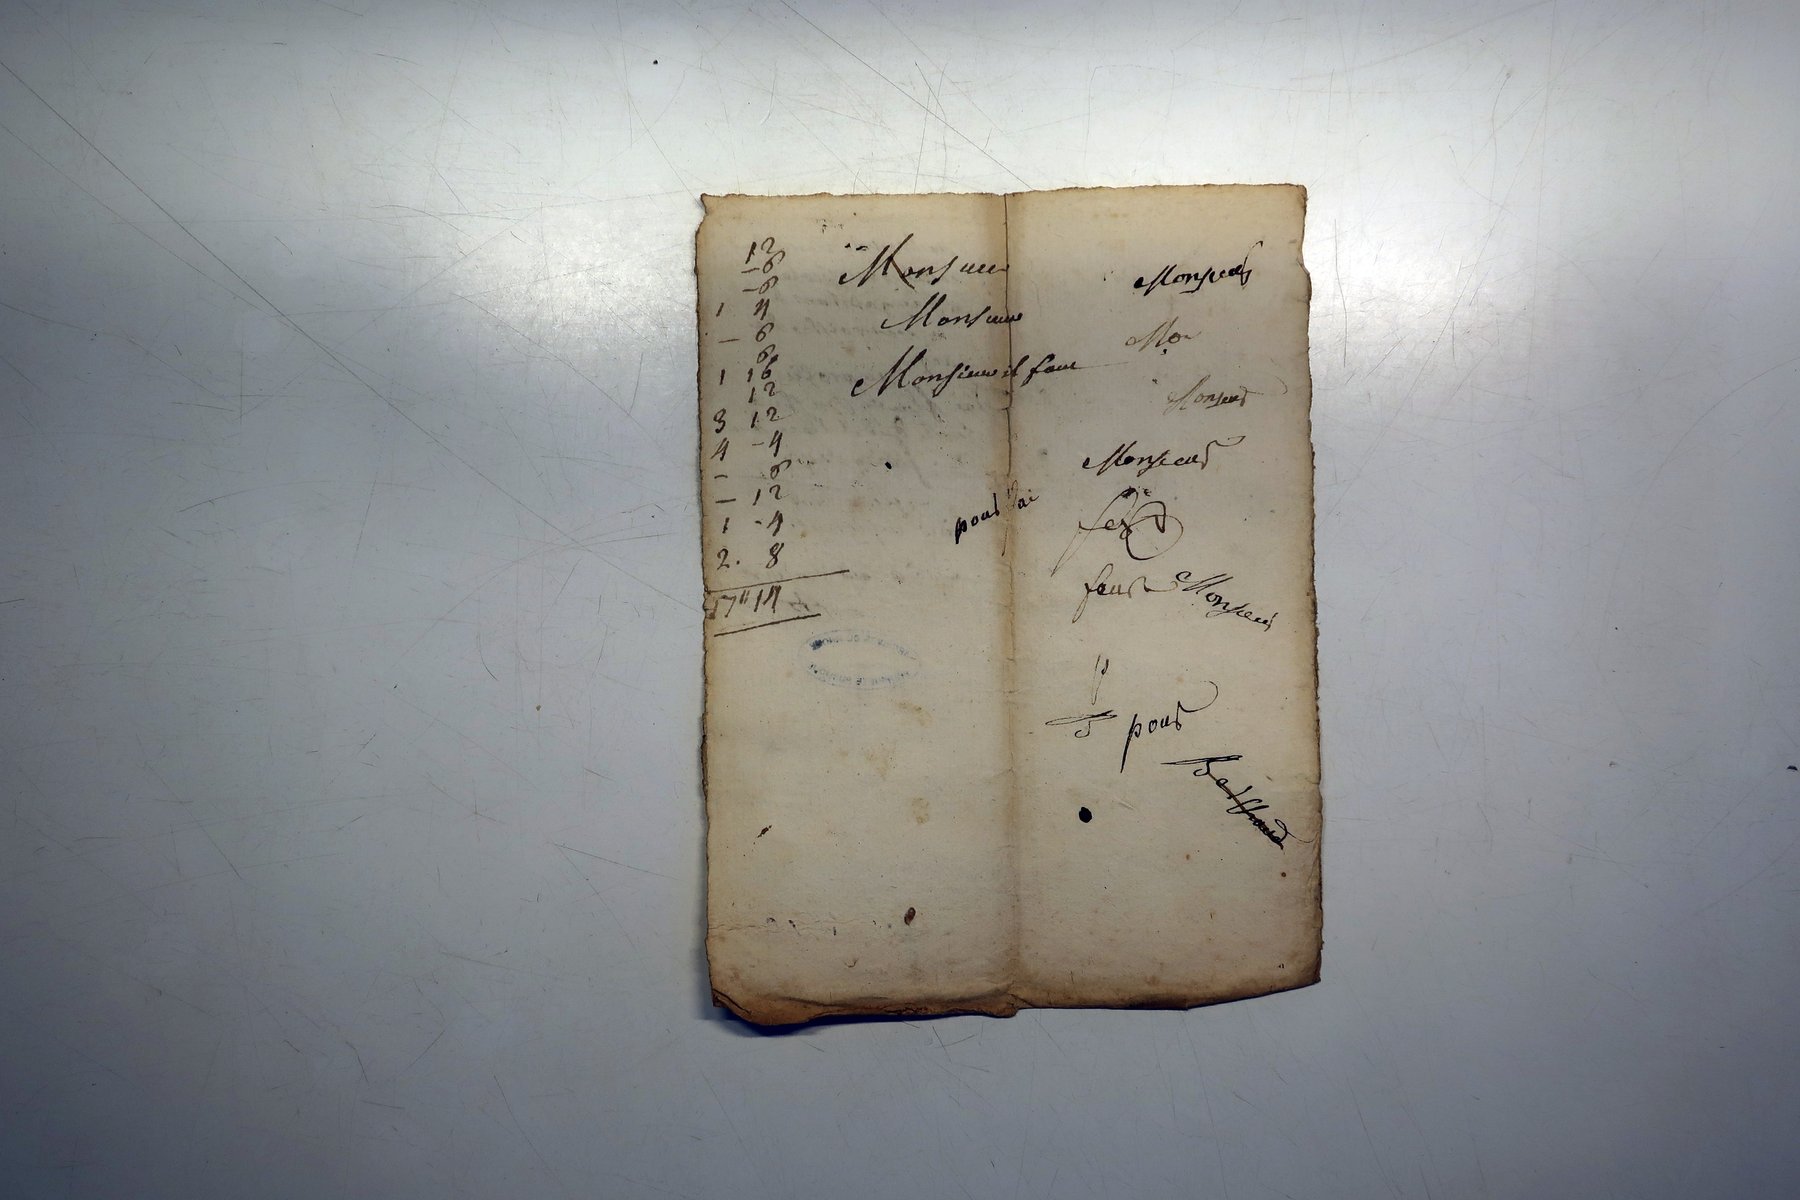 12
- 8
- 8
1 4
- 6
8
1 16
12
3 12
4 - 4
- 8
- 12
1 - 4
2. 8
17" 14
Monsieur
Monsieur
Monsieur il faut
pour
Monsieur
Mo
Monsieur
Monsieur
faut Monsieur
p
pour